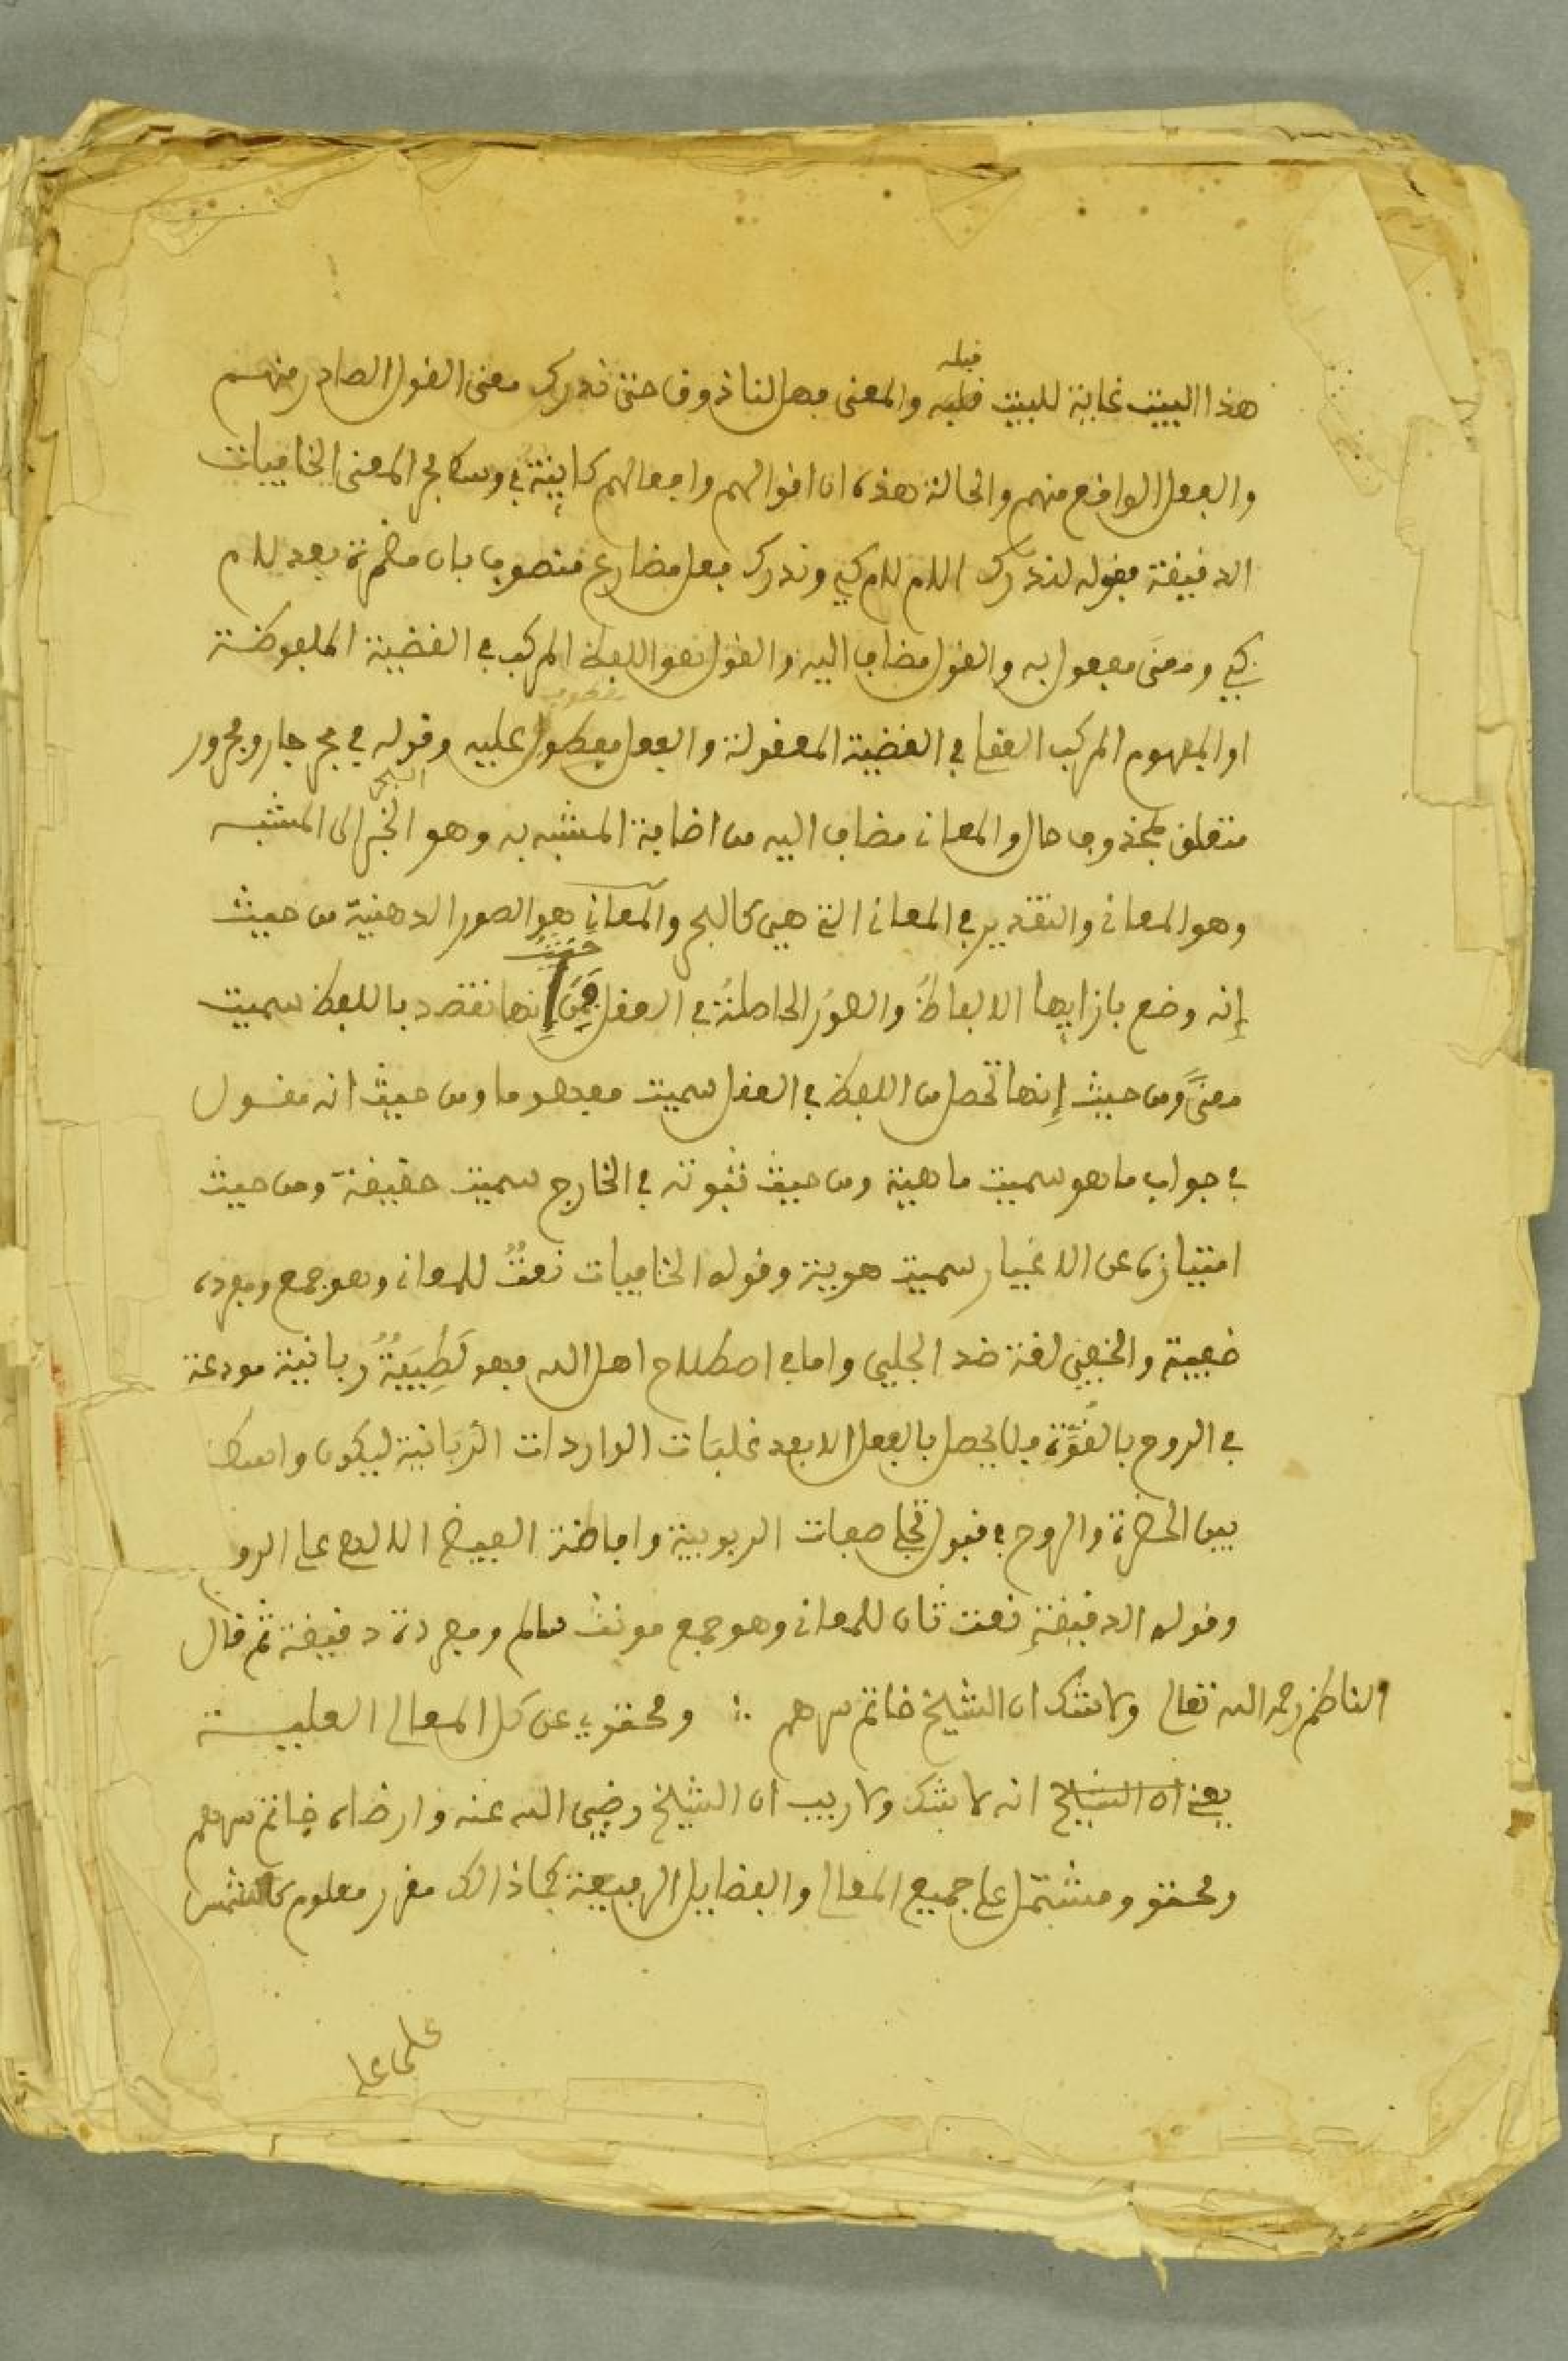 قبله
هذا البيت غاية للبيت قليه والمعنى فهل لنا ذوق حتى ندرك معنى القول الصادر منهم
والفعل الواقع منهم والحالة هذه ان اقوالهم وافعالهم كاينة في المعنى الخافيات
الدقيقة فقوله لندرك اللام لام كي وندرك فعل مضارع منصوب بان مضمرة بعد لام
كي ومعنى مفعول به والقول مضاف اليه والقول هو اللفظ المركب في القضية الملفوظة
او المفهوم المركب العقلي في القضية المعقولة والفعل معطوف عليه وقوله في بحر جار ومجرور
البحر
متعلق بمحذوف حال والمعاني مضاف اليه من اضافة المشبه به وهو الى المشبه
وهو المعاني والتقدير في المعاني التي هي كالبحر والمعاني هو الصور الذهنية من حيث
حيث
إنه وضع بازايها الالفاظ والصور الحاصلة في العقل فمن إنها تقصد باللفظ سميت
معنًى ومن حيث إنها تحصل من اللفظ في العقل سميت مفهوما ومن حيث انه مقول
في جواب ما هو سميت ماهية ومن حيث ثبوته في الخارج سميت حقيقة ومن حيث
امتيازه عن الاغيار سميت هوية وقوله الخافيات نعتٌ للمعاني وهو جمع ومفرده
خفية والخفي لغة ضد الجلي واما في اصطلاح اهل الله فهو لَطِيفَةٌ ربانية مودعة
في الروح بالقُوَّة فلا يحصل بالفعل الا بعد غلبات الواردات الرَّبانية ليكون واسطة
بين الحضرة والروح في قبول تجلي صفات الربوبية وافاضة الفيض الالهي على الروح
وقوله الدقيقةِ نعت ثان للمعاني وهو جمع مونث سالم ومفردة دقيقة ثم قال
الناظم رحمه الله تعالى ولا شك ان الشيخ خاتم سرهم ∴ ومحتوي عن كل المعالي العلية
يعني ان الشيخ انه لا شك ولا ريب ان الشيخ رضي الله عنه وارضاه خاتم سرهم
ومحتو ومشتمل على جميع المعالي والفضايل الرفيعة كما ذالك مقرر معلوم كالشمس
على